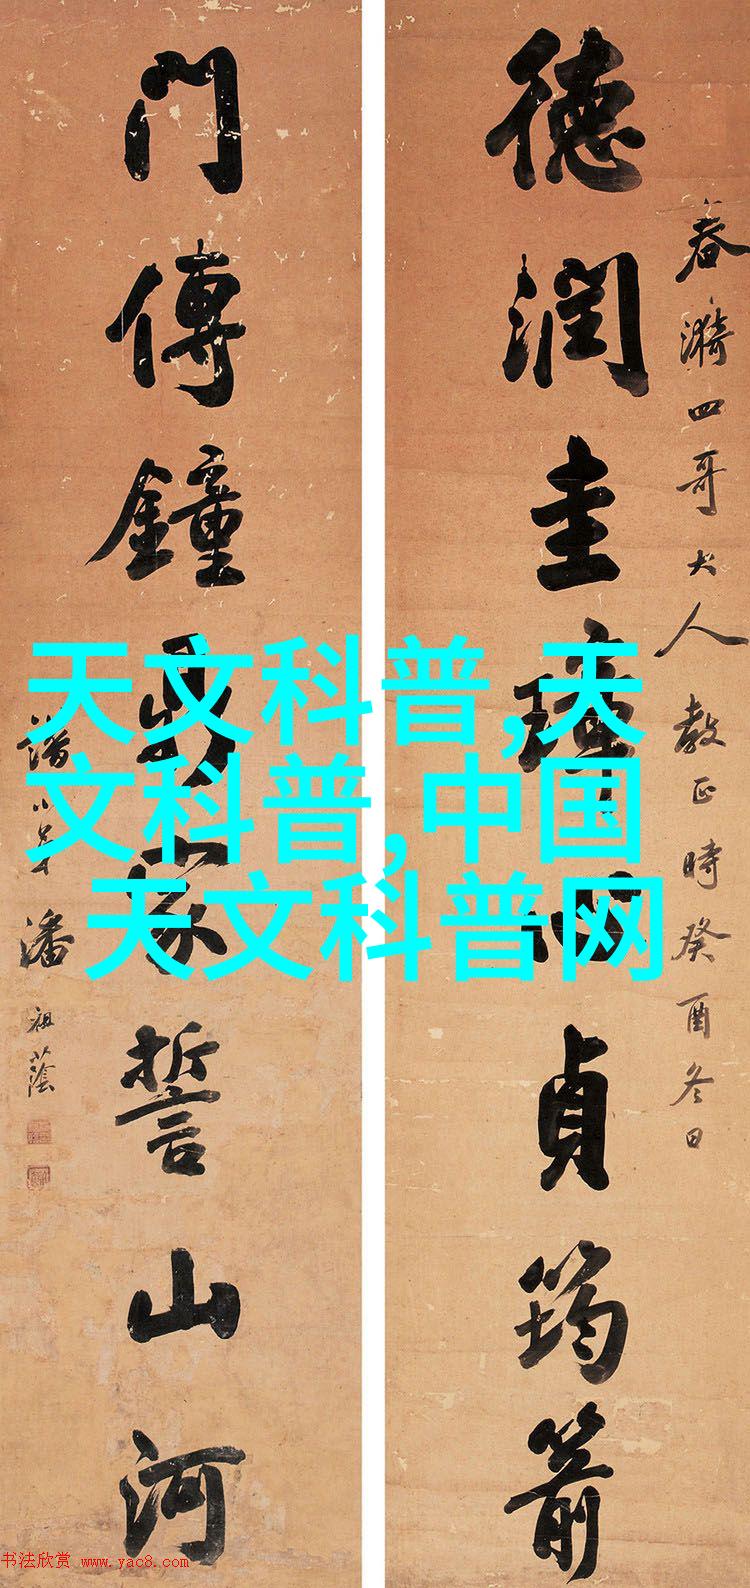 德潤圭璋心貞筠箭
春漪四哥大人教正時癸酉冬日
門傳鐘鼎家誓山河
譜小弟潘祖蔭
天文科普,天
文科普,中国
天文科普网
书法欣赏 www.yac8.com